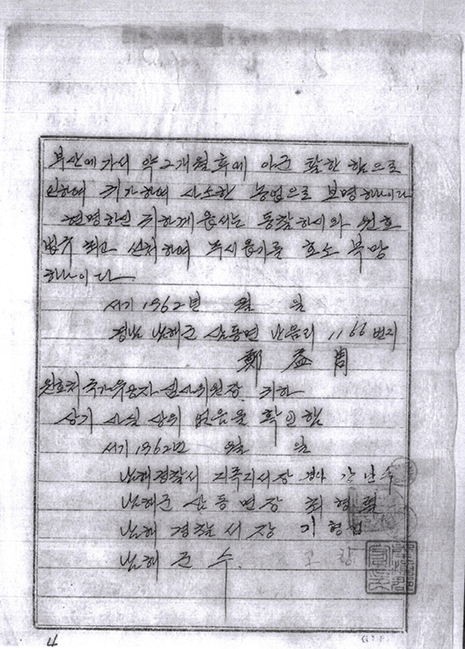 부산에 가서 약 2개월 후에 아군 탈환함으로
인하여 귀가하여 사소한 농업으로 보명하나이다
현명하신 귀하께옵서는 통찰하시와 원호
법규 선처하여 주시옵기를 복망
하나이다
서기 1962년 월 일
경남 남해군 삼동면 난음리 1166번지
鄭
원호처 국가유공자 심사위원장 귀하
상기 사실 상위 없음을 확인함
서기 1962년 월 일
남해경찰서 지족지서장 경사
남해군 삼동면장 최형
남해 경찰서장
남해군수
4